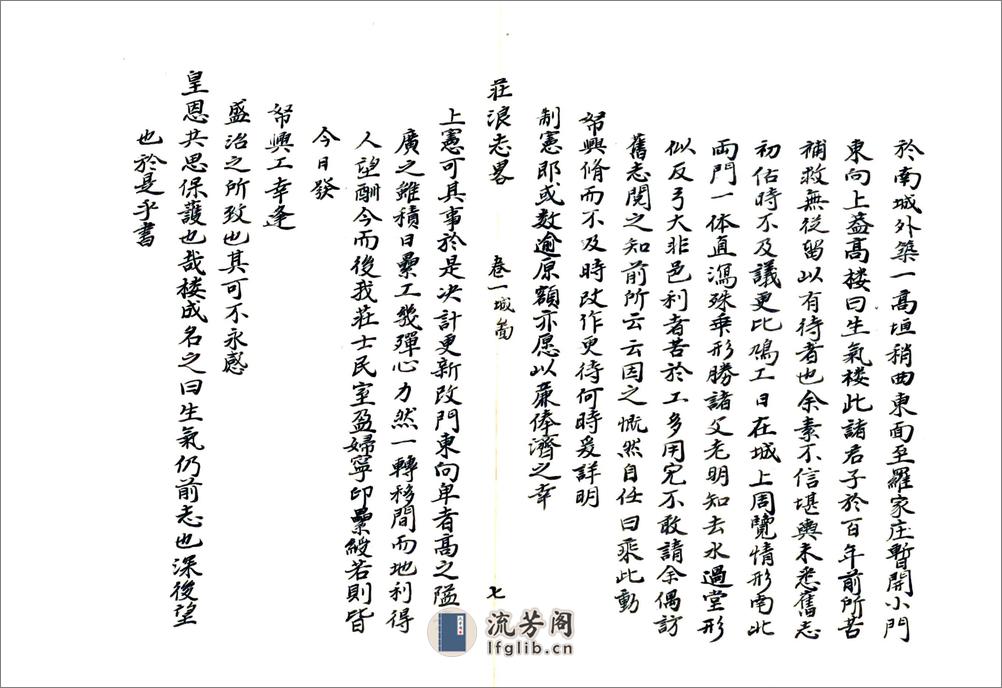 於南城外築一髙垣稍曲東面至羅家庄暫開小門
東向上葢髙楼曰生氣楼此諸君子於百年前所苦
補救無從留以有待者也余素不信堪輿未悉舊志
初估時不及議更比鳩工日在城上周覽情形南北
両門一体直瀉殊乗形勝諸父老明知去水過堂形
似反弓大非邑利者苦於工多用宂不敢請余偶訪
舊志閱之知前所云云因之慨然自任曰乘此動
帑興脩而不及時改作更待何時爰詳明
制憲郎或数逾原額亦愿以亷俸濟之幸
莊浪志畧
卷一城啚
七
上憲可其事於是决計更新改門東向卑者髙之隘
廣之雖積日纍工幾殫心力然一轉移間而地利得
人望酬今而後我莊士民室盈婦寧印纍綬若則皆
今日發
帑興工幸逢
盛治之所致也其可不永感
皇恩共思保護也哉楼成名之曰生氣仍前志也深後望
也於是乎書
流芳阁
lfglib.cn